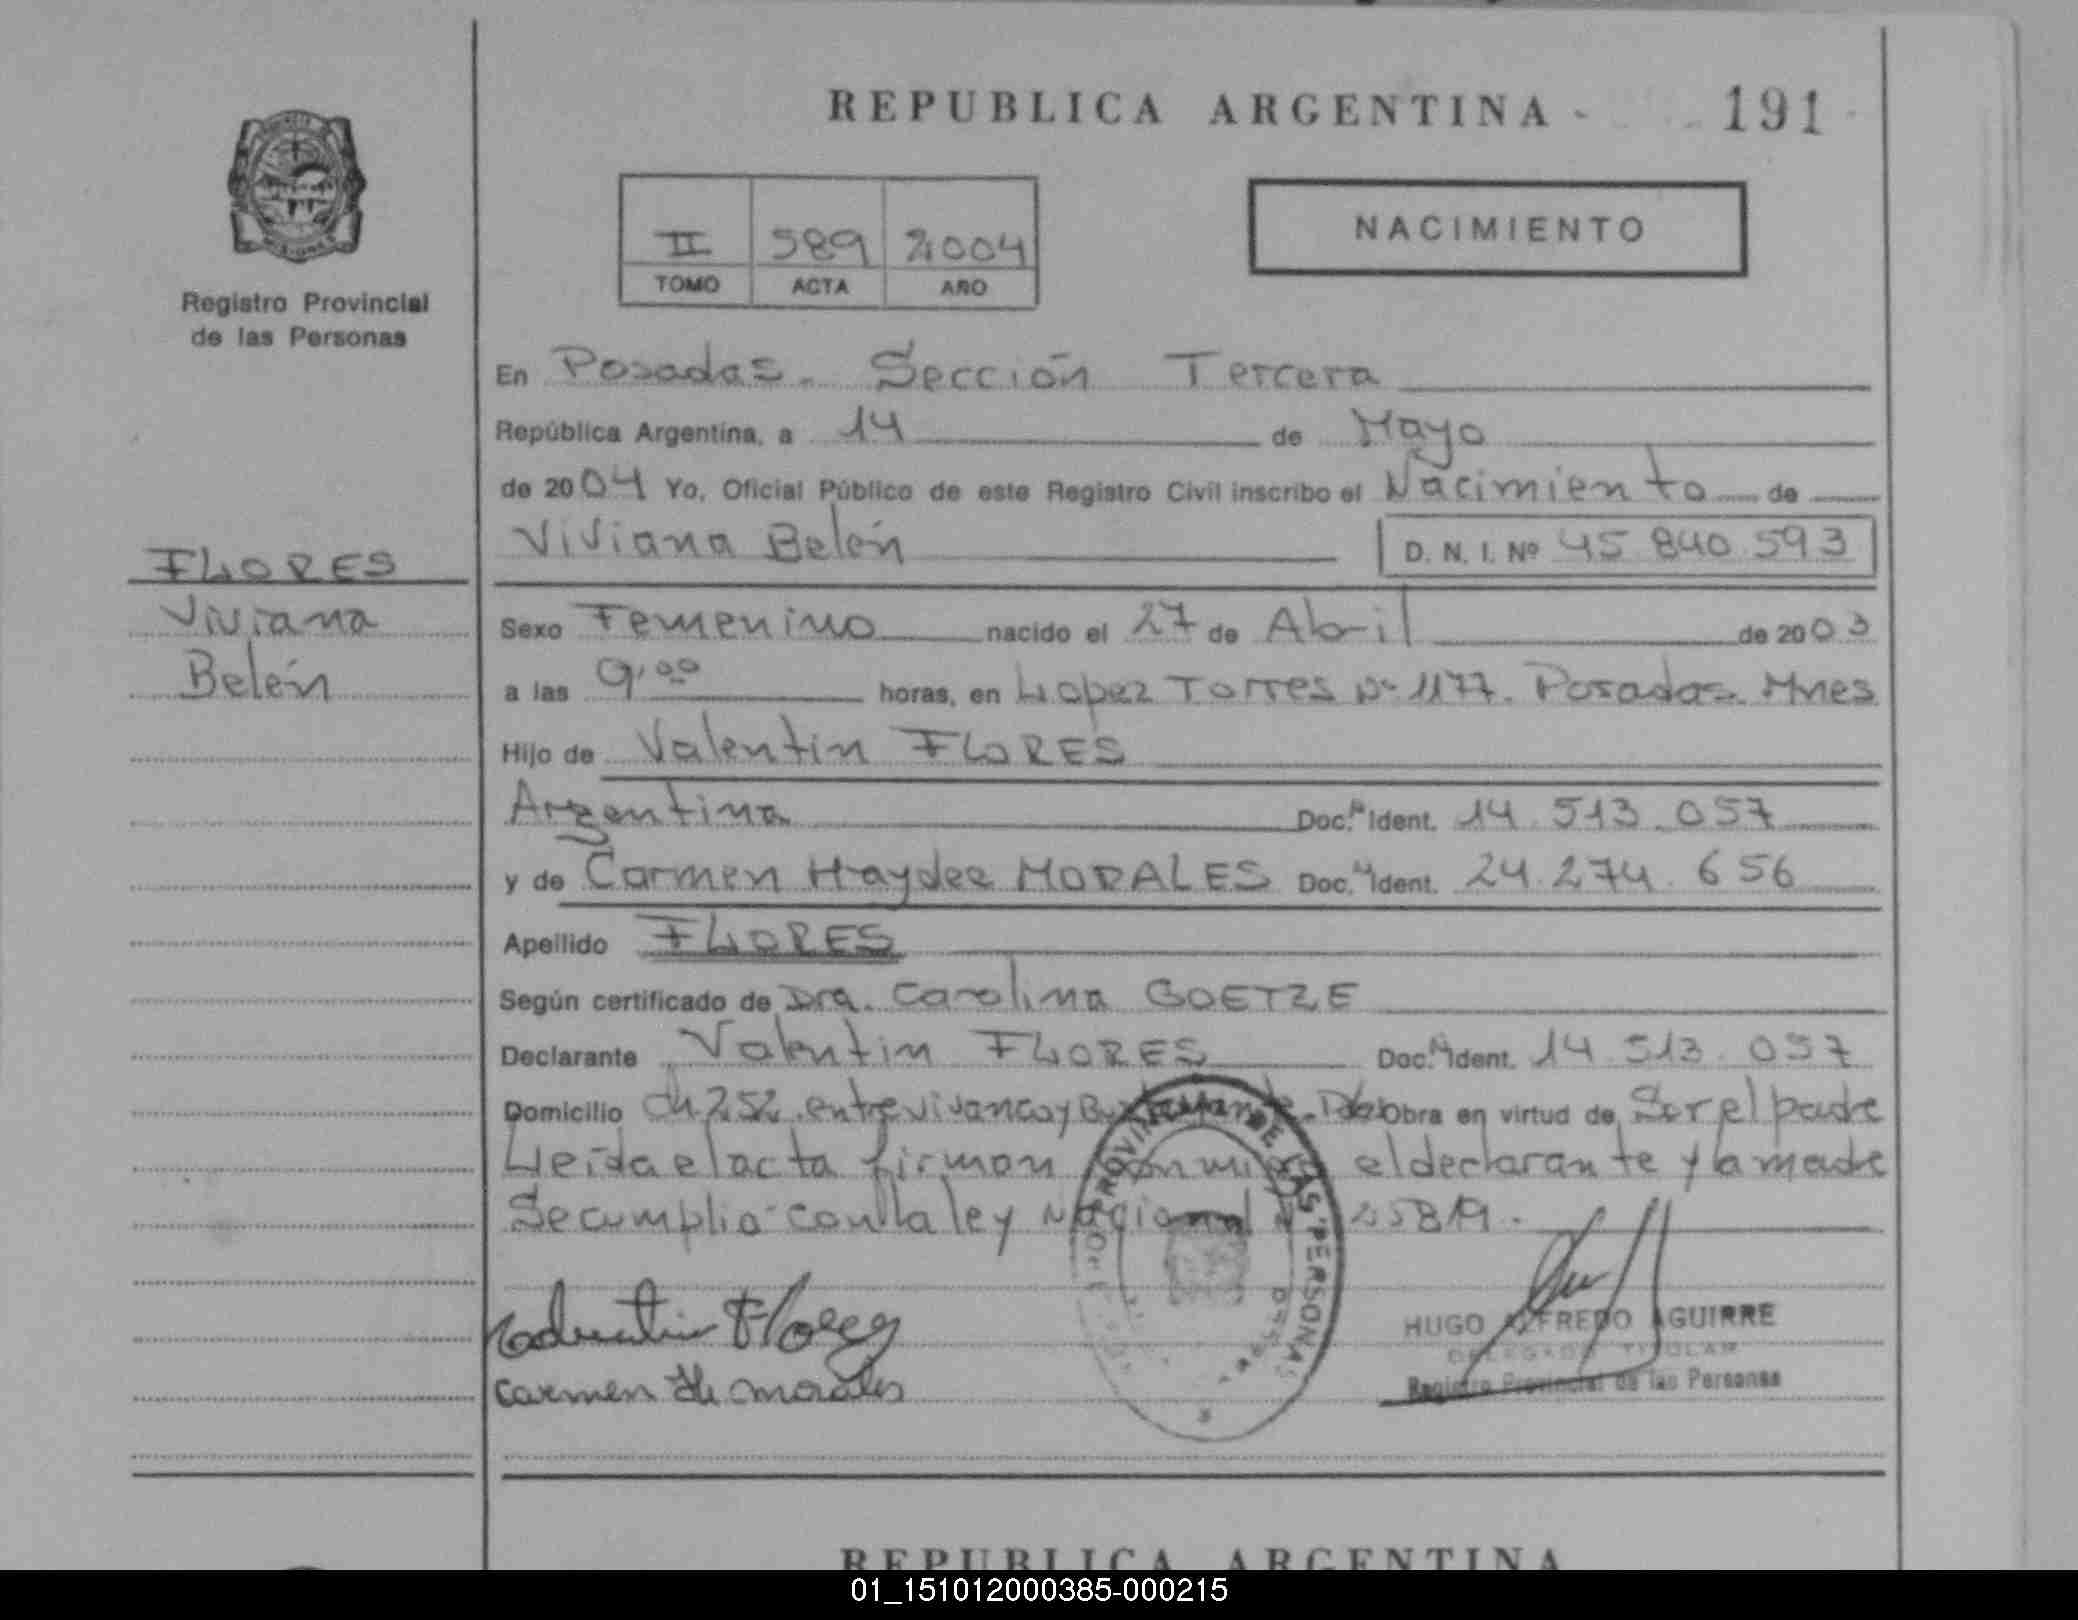 REPUBLICA ARGENTINA - 191
NACIMIENTO
II 589 2004
TOMO ACTA AÑO
Registro Provincial
de las Personas
En Posadas. Sección Tercera
República Argentina, a 14 de Mayo
de 2004 Yo, Oficial Público de este Registro Civil inscribo el Nacimiento de
Viviana Belén D. N. I. Nº 45 840 593
FLORES
Viviana
Belén
Sexo Femenino nacido el 27 de Abril de 2003
a las 9,00 horas, en Lopez Torres Nº 1177. Posadas. Mnes
Hijo de Valentin FLORES
Argentina Doc. Ident. 14.513.057
y de Carmen Haydee MORALES Doc. Ident. 24.274.656
Apellido FLORES
Según certificado de Dra. Carolina GOETZE
Declarante Valentin FLORES Doc. Ident. 14.513.057
Domicilio Ch 252 entre Vivanco y Obra en virtud de Ser el padre
Leida el acta firman conmigo el declarante y la madre
Se cumplio con la ley Nacional
PROVINCIAL DE LAS PERSONAS
Valentin Flores
Carmen H de Morales
HUGO ALFREDO AGUIRRE
DELEGADO TITULAR
Registro Provincial de las Personas
REPUBLICA ARGENTINA
01_151012000385-000215